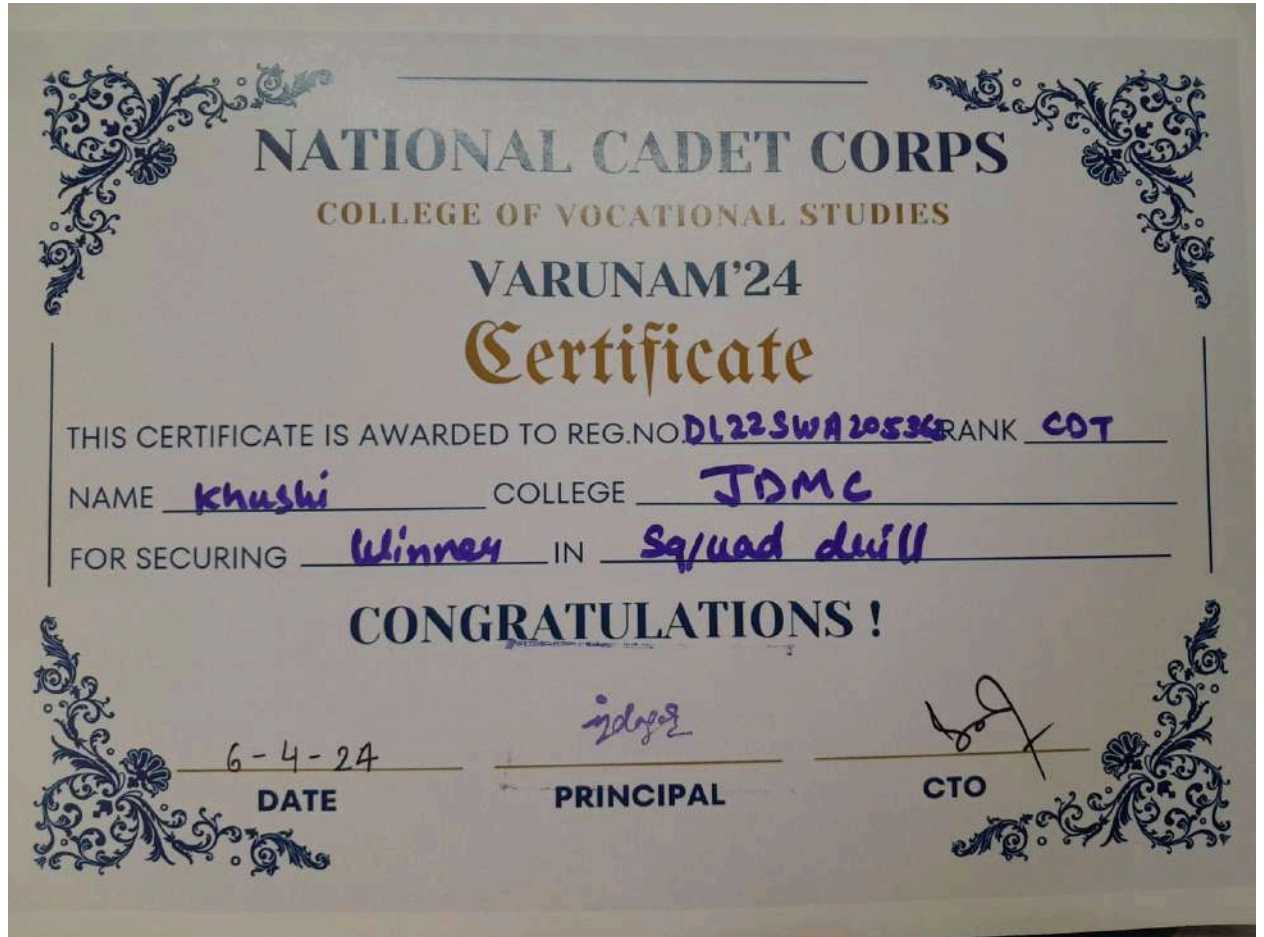 NATIONAL CADET CORPS
COLLEGE OF VOCATIONAL STUDIES
VARUNAM'24
Certificate
THIS CERTIFICATE IS AWARDED TO REG.NO. RANK CDT
NAME Khushi COLLEGE JDMC
FOR SECURING Winner IN Squad drill
CONGRATULATIONS !
6-4-24
DATE PRINCIPAL CTO